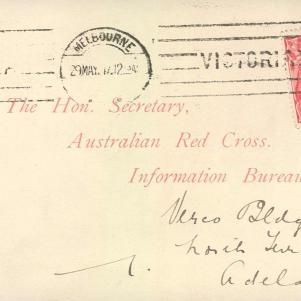 MELBOURNE
29MAY.17.12
VICTORI
The Hon. Secretary,
Australian Red Cross.
Information Bureau
Verco Bldg
North Terr
Adela